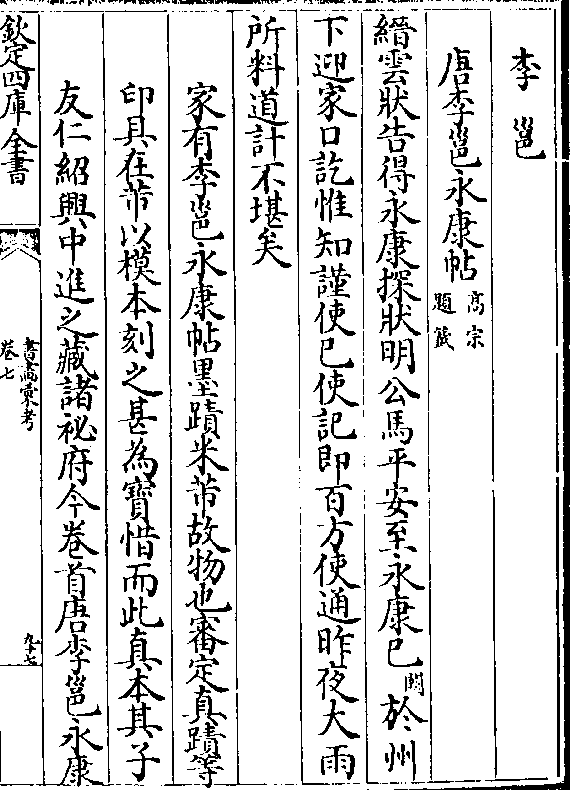 李邕
唐李邕永康帖高宗題籤
縉雲狀告得永康探狀明公馬平安至永康已闕於州
下迎家口訖惟知謹使已使記即百方使通昨夜大雨
所料道計不堪矣
家有李邕永康帖墨蹟米芾故物也審定真蹟等
印具在芾以模本刻之甚為寶惜而此真本其子
友仁紹興中進之藏諸祕府今卷首唐李邕永康
欽定四庫全書
書畫彙考
卷七
九十七